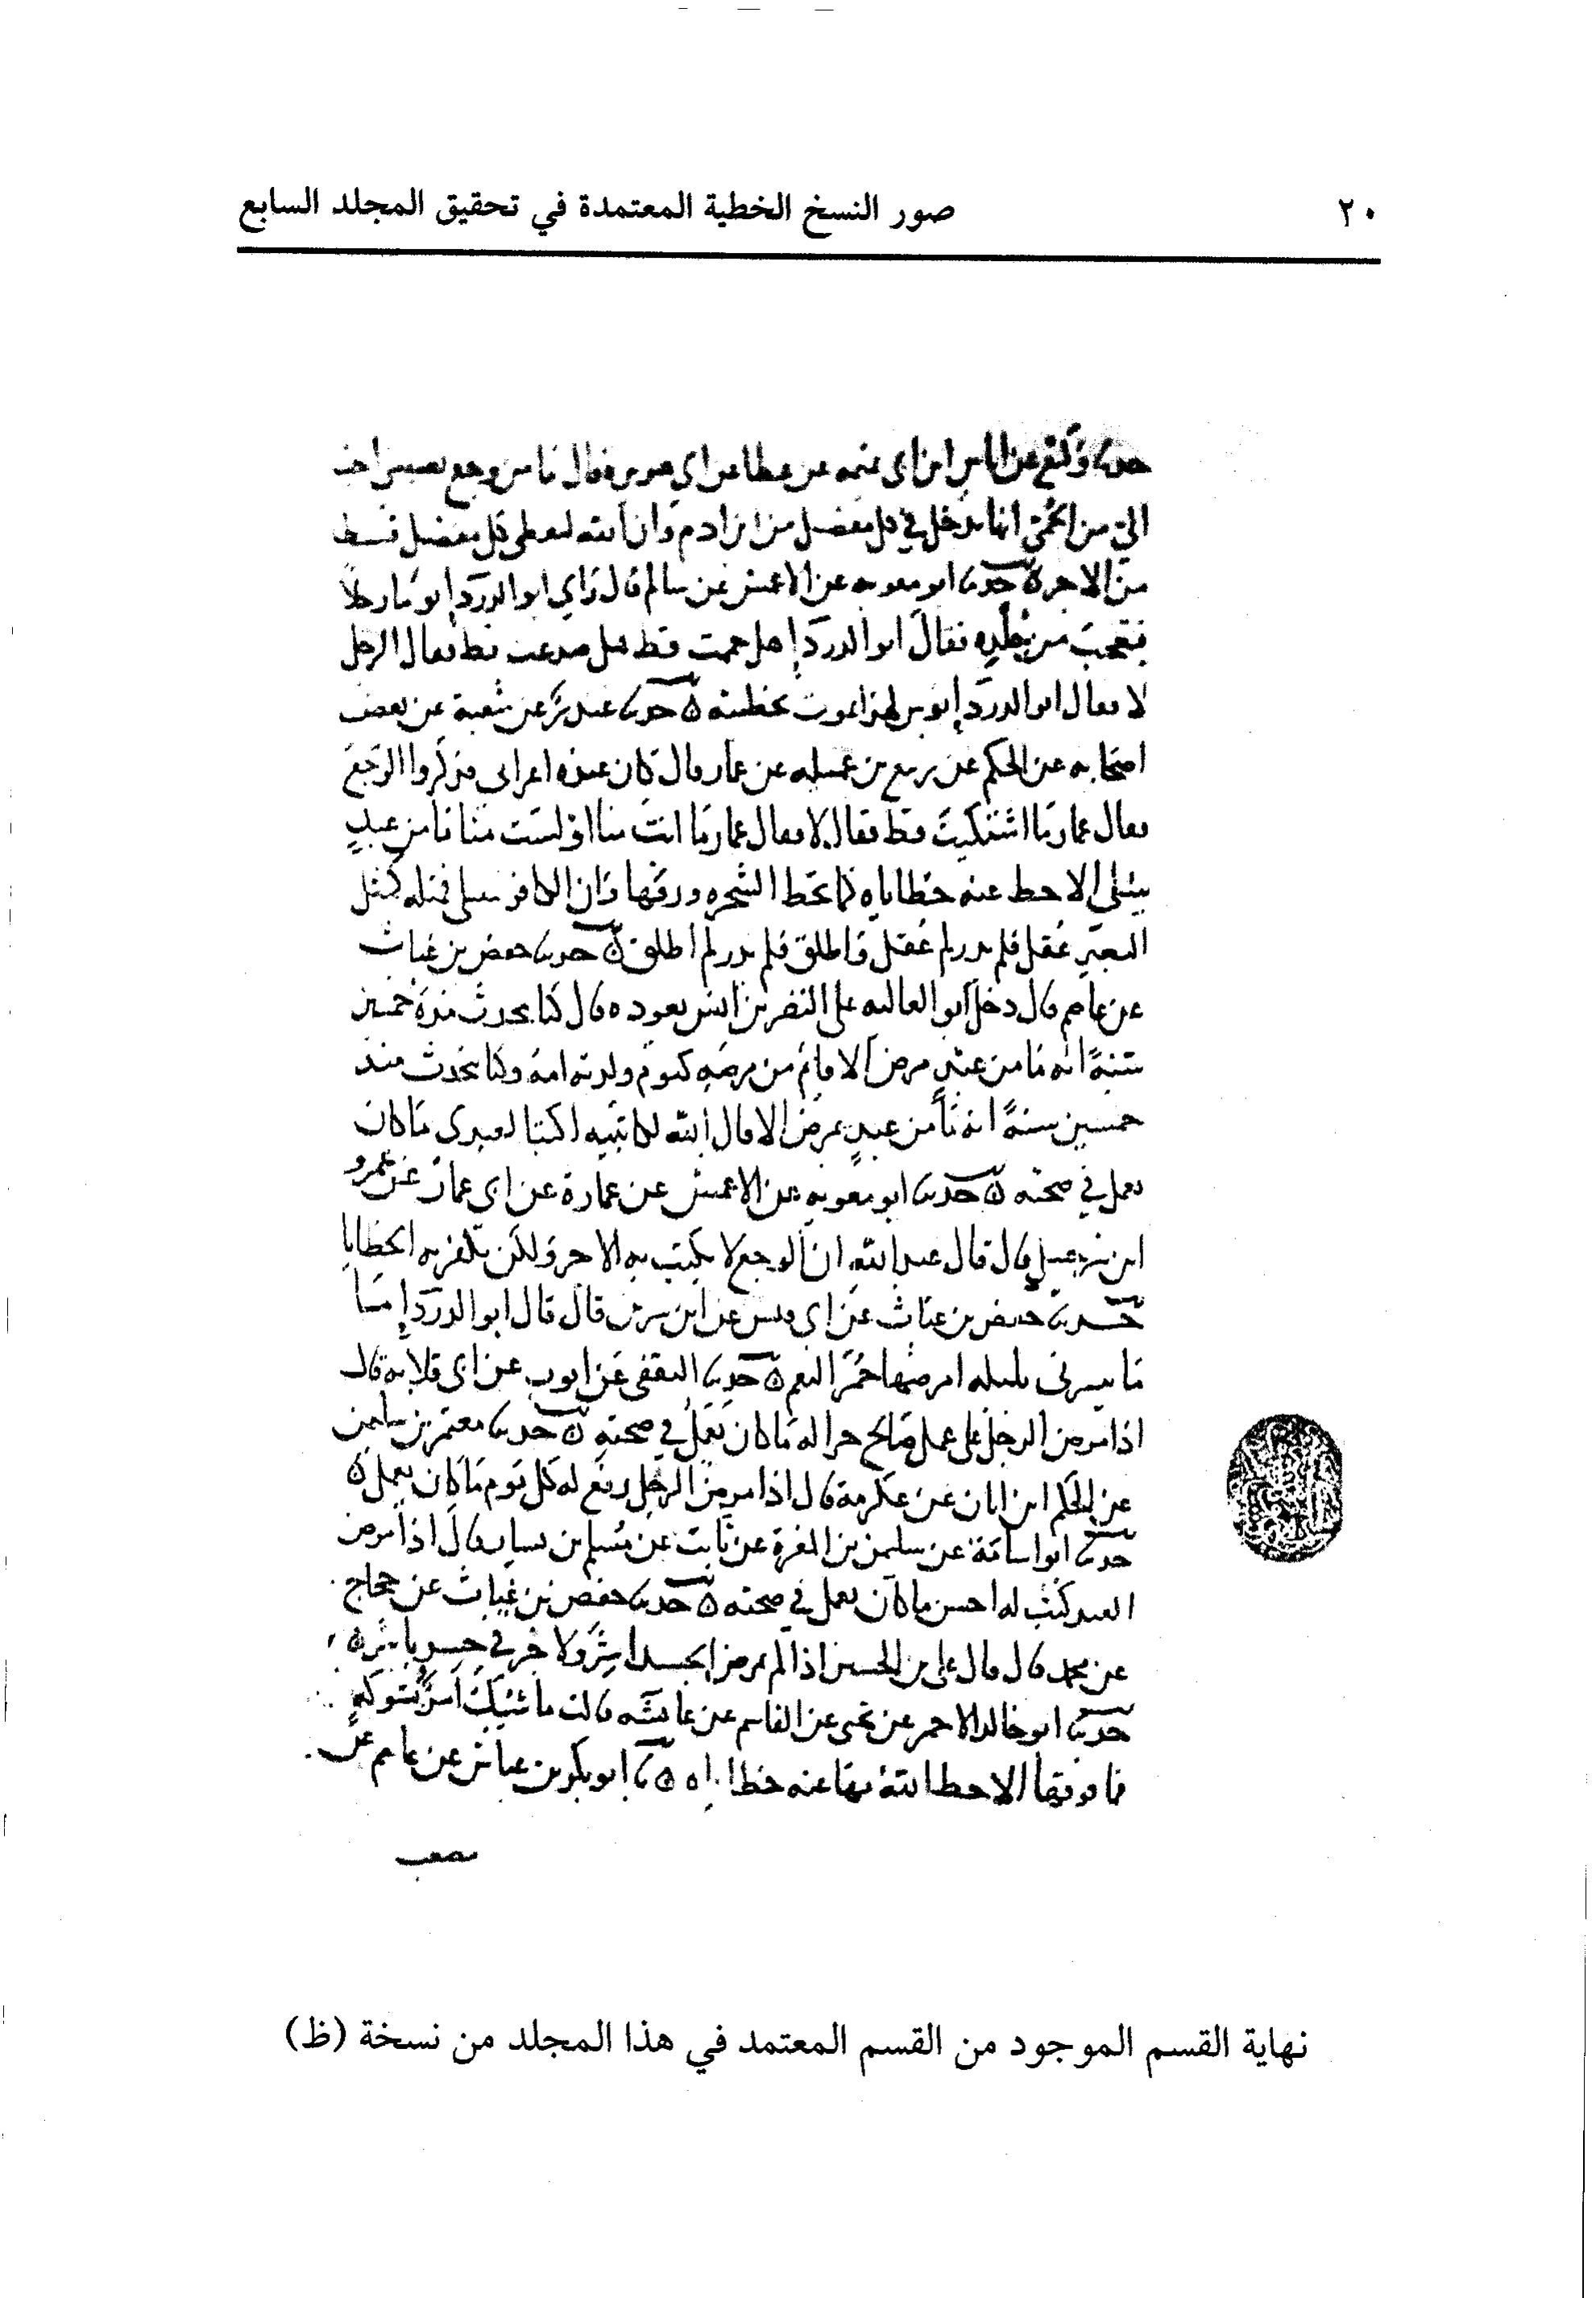 ٢٠ صور النسخ الخطية المعتمدة في تحقيق المجلد السابع
حدثنا وكيع عن اياس ابن ابي تميمه عن عطا عن ابي هريره قال ما من وجع يصيبني احب
الي من الحمى انها تدخل في كل مفصل من ابن ادم وان الله ليعطي كل مفصل قسطا
من الاجر ه حدثنا ابو معويه عن الاعمش عن سالم قال راى ابو الدردإ يوما رجلا
فتعجب من جلده فقال ابو الدردإ هل حممت قط هل صدعت قط فقال الرجل
لا فقال ابو الدردإ بوس لهذا يموت بخطيئته ه حدثنا غندر عن شعبة عن بعض
اصحابه عن الحكم عن ربيع بن عميله عن عمار قال كان عنده اعرابي فذكروا الوجع
فقال عمار ما اشتكيت قط فقال لا فقال عمار ما انت منا او لست منا ما من عبد
يبتلى الا حط عنه خطاياه كما تحط الشجره ورقها وان الكافر يبتلى فمثله كمثل
البعير عقل فلم يدر لم عقل واطلق فلم يدر لم اطلق ه حدثنا حفص بن غياث
عن عاصم قال دخل ابو العاليه على النضر بن انس يعوده قال كنا نحدث منذ خمسين
سنة انه ما من عبد مرض الا قام من مرضه كيوم ولدته امه وكنا نحدث منذ
خمسين سنة انه ما من عبد يمرض الا قال الله لكاتبيه اكتبا لعبدي ما كان
يعمل في صحته ه حدثنا ابو معويه عن الاعمش عن عمارة عن ابي عمار عن عمرو
ابن شرحبيل قال قال عبد الله ان الوجع لا يكتب به الاجر ولكن تكفر به الخطايا
حدثنا حفص بن غياث عن ابن سيرين قال قال ابو الدردإ
ما يسرني بليله امرضها حمر النعم ه حدثنا الثقفي عن ايوب عن ابي قلابه قال
اذا مرض الرجل على عمل صالح جرا له ما كان يعمل في صحته ه حدثنا معتمر بن سليمن
عن الحكم ابن ابان عن عكرمة قال اذا مرض الرجل رفع له كل يوم ما كان يعمل ه
حدثنا ابو اسامة عن سليمن بن المغيرة عن ثابت عن مسلم بن يسار قال اذا مرض
العبد كتب له احسن ما كان يعمل في صحته ه حدثنا حفص بن غياث عن حجاج
عن محمد قال قال علي بن الحسين اذا لم يمرض الجسد اشر ولا خير في جسد ياشر ه
حدثنا ابو خالد الاحمر عن يحيى عن القاسم عن عايشه قالت ما شيك امرؤ بشوكة
فما فوقها الا حط الله بها عنه خطاياه ه ثنا ابو بكر بن عياش عن عاصم عن
مصعب
نهاية القسم الموجود من القسم المعتمد في هذا المجلد من نسخة (ظ)